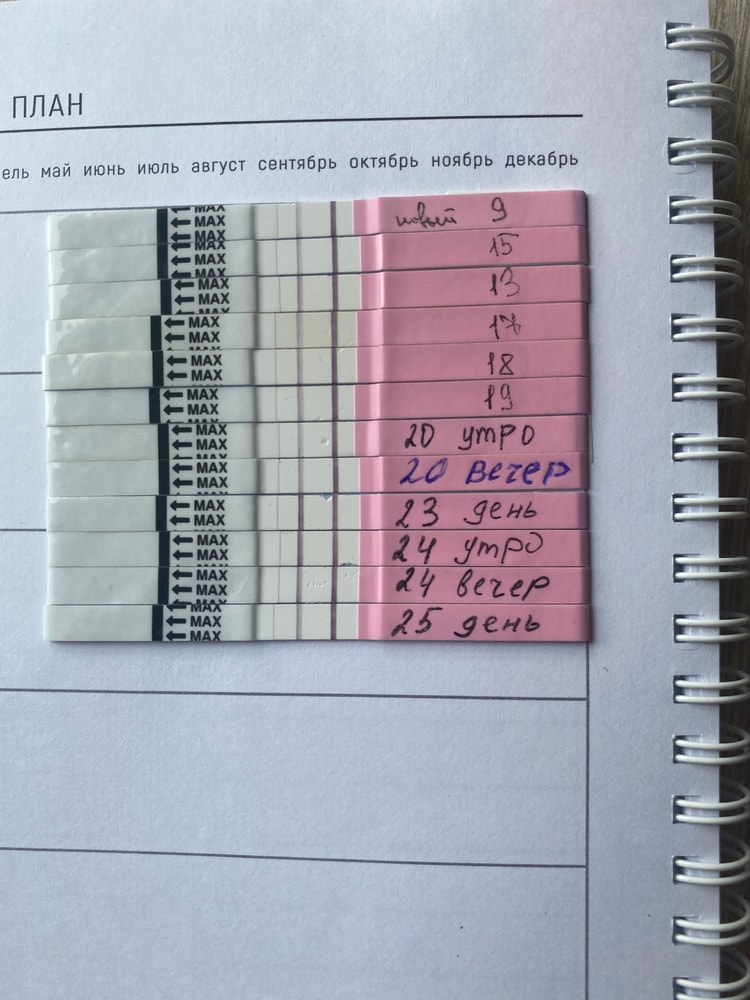 ПЛАН
ель май июнь июль август сентябрь октябрь ноябрь декабрь
MAX
MAX новый 9
MAX
MAX 15
MAX
MAX 13
MAX
MAX 17
MAX
MAX 18
MAX
MAX 19
MAX
MAX 20 утро
MAX
MAX 20 вечер
MAX
MAX 23 день
MAX
MAX 24 утро
MAX
MAX 24 вечер
MAX
MAX
MAX 25 день
MAX